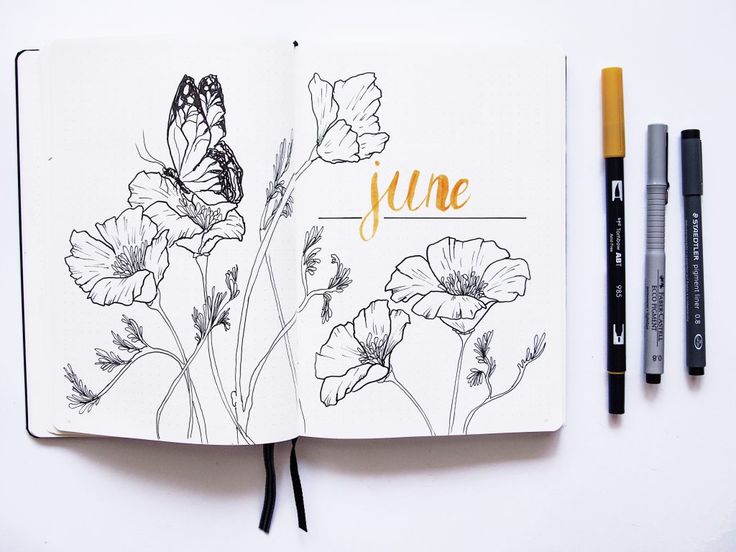 june
Tombow ABT
985
FABER-CASTELL
ECO PIGMENT
0.8
STAEDTLER
pigment liner 0.8